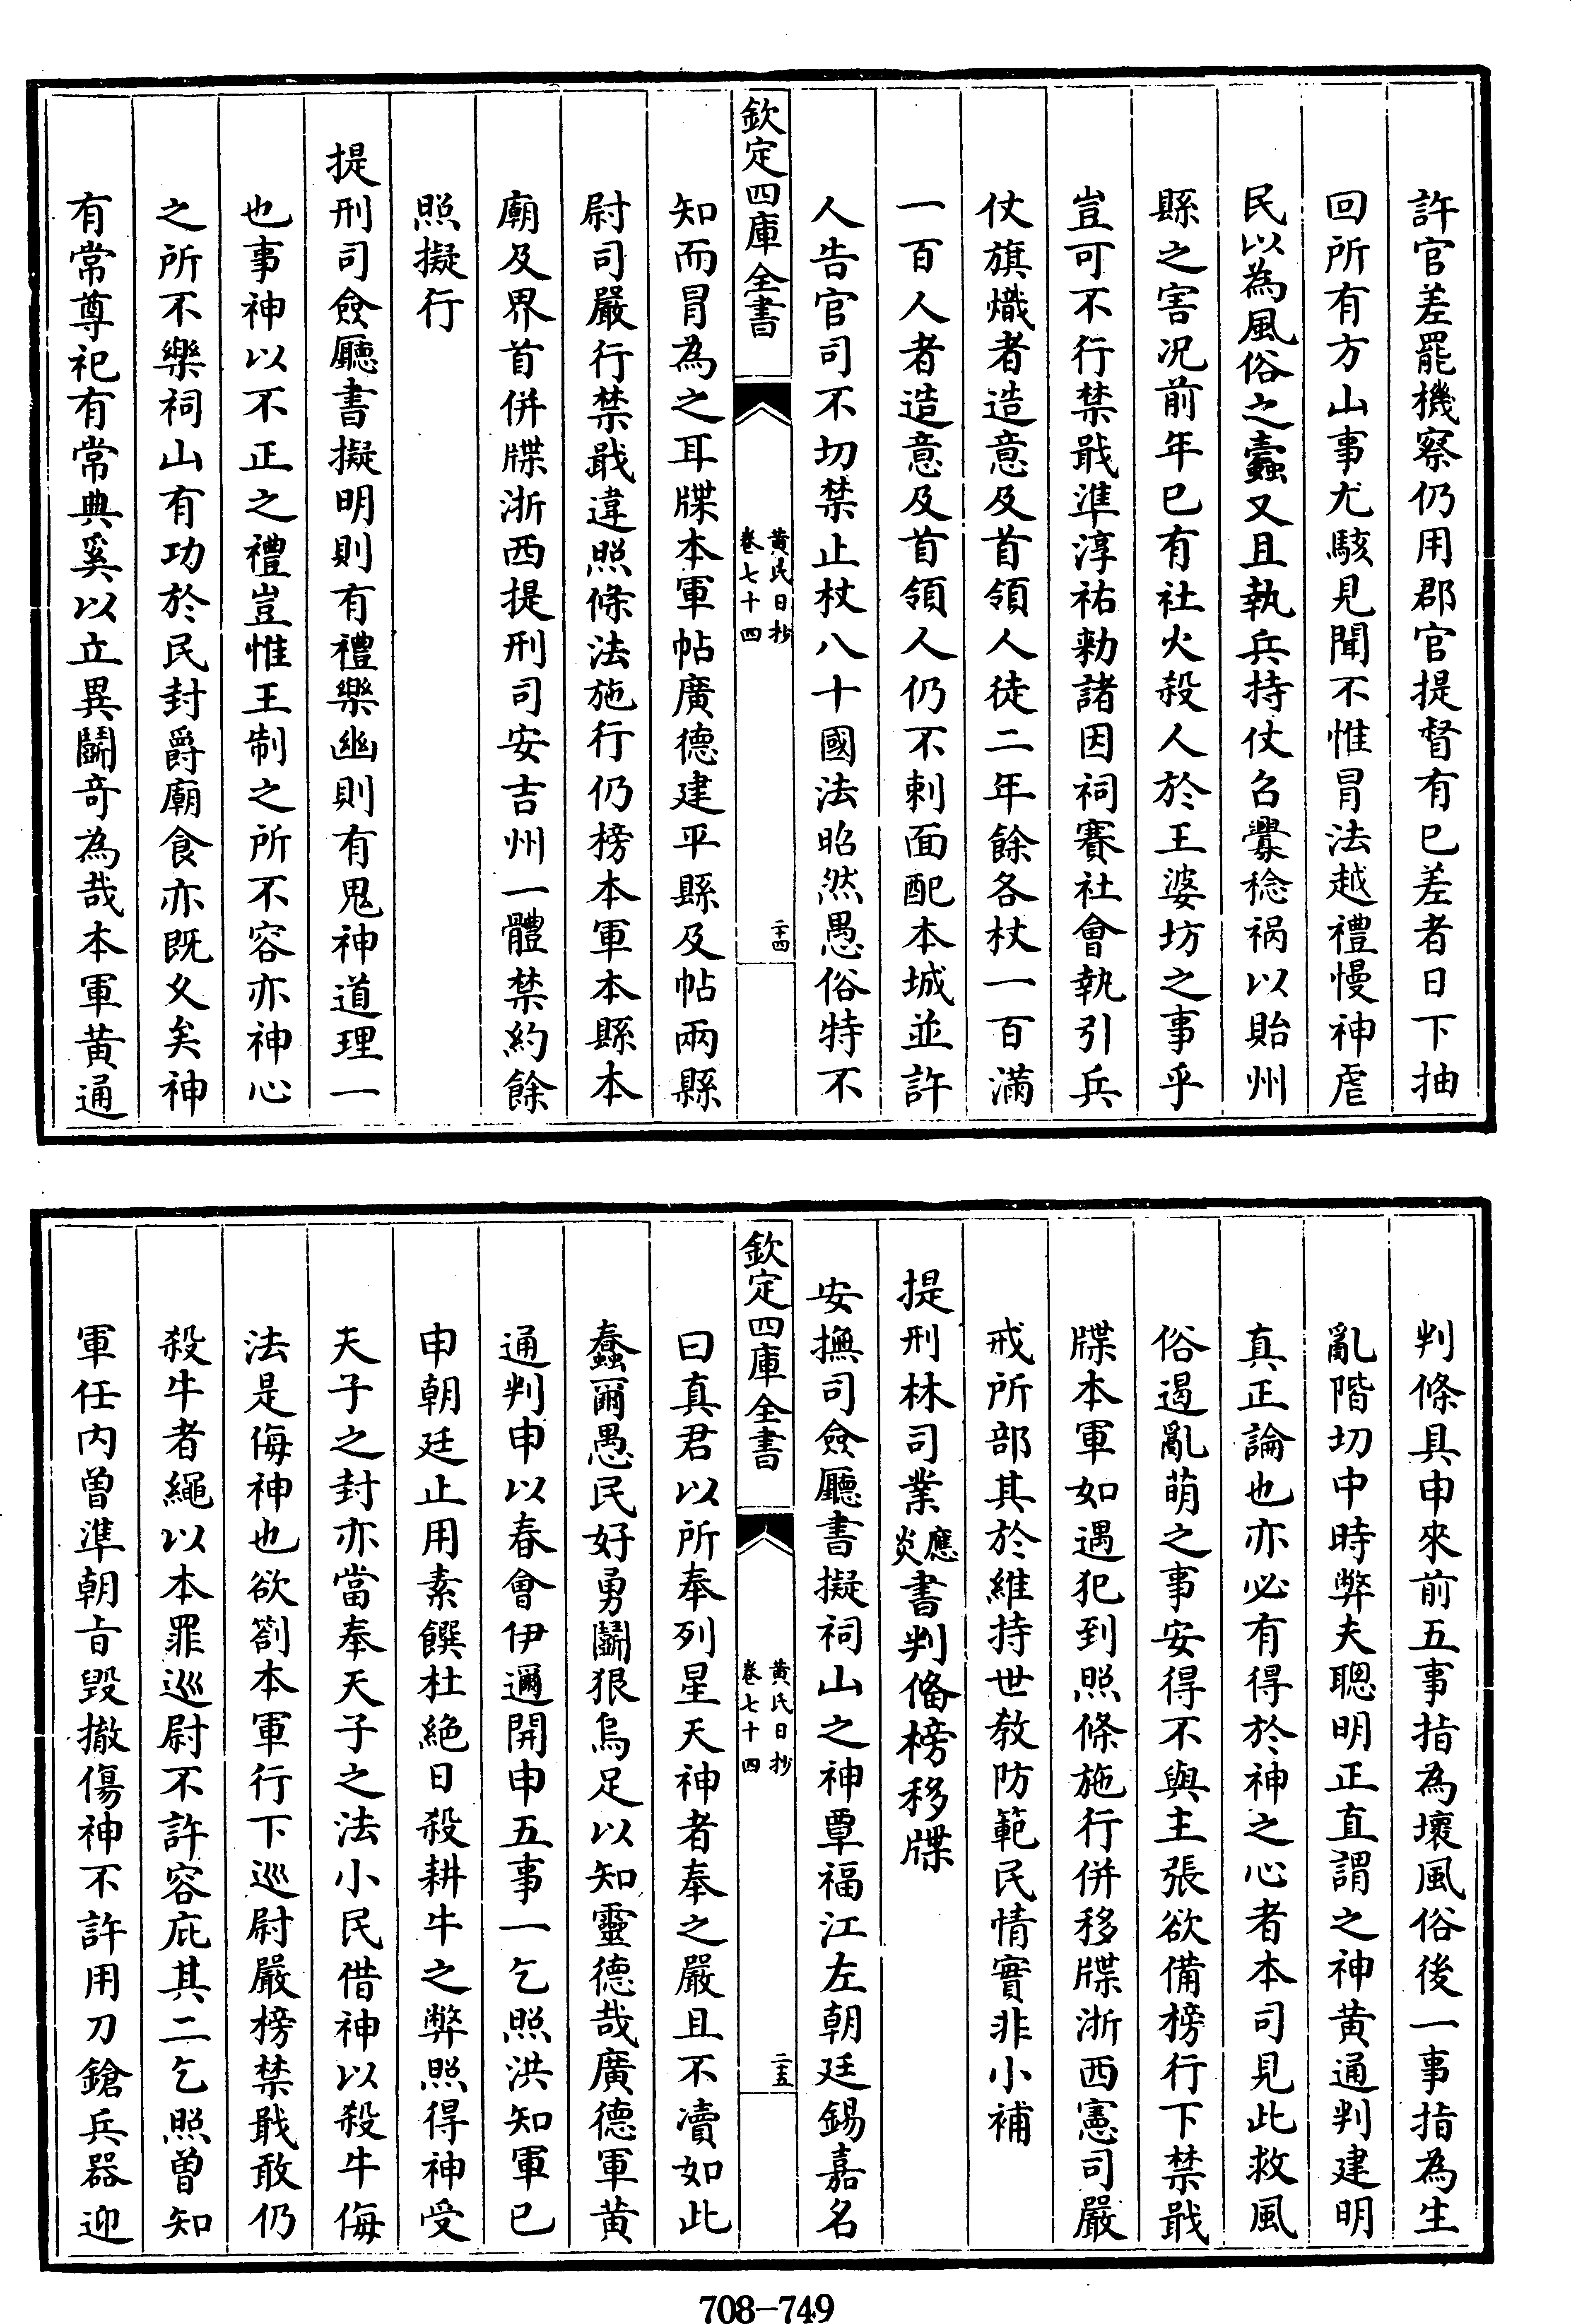 許官差罷機察仍用郡官提督有已差者日下抽
回所有方山事尤駭見聞不惟冒法越禮慢神虐
民以為風俗之蠹又且執兵持仗召釁稔禍以貽州
縣之害况前年已有社火殺人於王婆坊之事乎
豈可不行禁戢準淳祐勑諸因祠賽社會執引兵
仗旗幟者造意及首領人徒二年餘各杖一百滿
一百人者造意及首領人仍不刺面配本城並許
人告官司不切禁止杖八十國法昭然愚俗特不
欽定四庫全書
黄氏日抄
卷七十四
二十四
知而冒為之耳牒本軍帖廣德建平縣及帖兩縣
尉司嚴行禁戢違照條法施行仍榜本軍本縣本
廟及界首併牒浙西提刑司安吉州一體禁約餘
照擬行
提刑司僉廳書擬明則有禮樂幽則有鬼神道理一
也事神以不正之禮豈惟王制之所不容亦神心
之所不樂祠山有功於民封爵廟食亦既久矣神
有常尊祀有常典奚以立異鬭奇為哉本軍黄通
判條具申來前五事指為壞風俗後一事指為生
亂階切中時弊夫聰明正直謂之神黄通判建明
真正論也亦必有得於神之心者本司見此救風
俗遏亂萌之事安得不與主張欲備榜行下禁戢
牒本軍如遇犯到照條施行併移牒浙西憲司嚴
戒所部其於維持世教防範民情實非小補
提刑林司業應炎書判備榜移牒
安撫司僉廳書擬祠山之神覃福江左朝廷錫嘉名
欽定四庫全書
黄氏日抄
卷七十四
二十五
曰真君以所奉列星天神者奉之嚴且不瀆如此
蠢爾愚民好勇鬭狠烏足以知靈德哉廣德軍黄
通判申以春會伊邇開申五事一乞照洪知軍已
申朝廷止用素饌杜絶日殺耕牛之弊照得神受
天子之封亦當奉天子之法小民借神以殺牛侮
法是侮神也欲劄本軍行下巡尉嚴榜禁戢敢仍
殺牛者繩以本罪巡尉不許容庇其二乞照曽知
軍任内曽準朝㫖毁撤傷神不許用刀鎗兵器迎
708-749